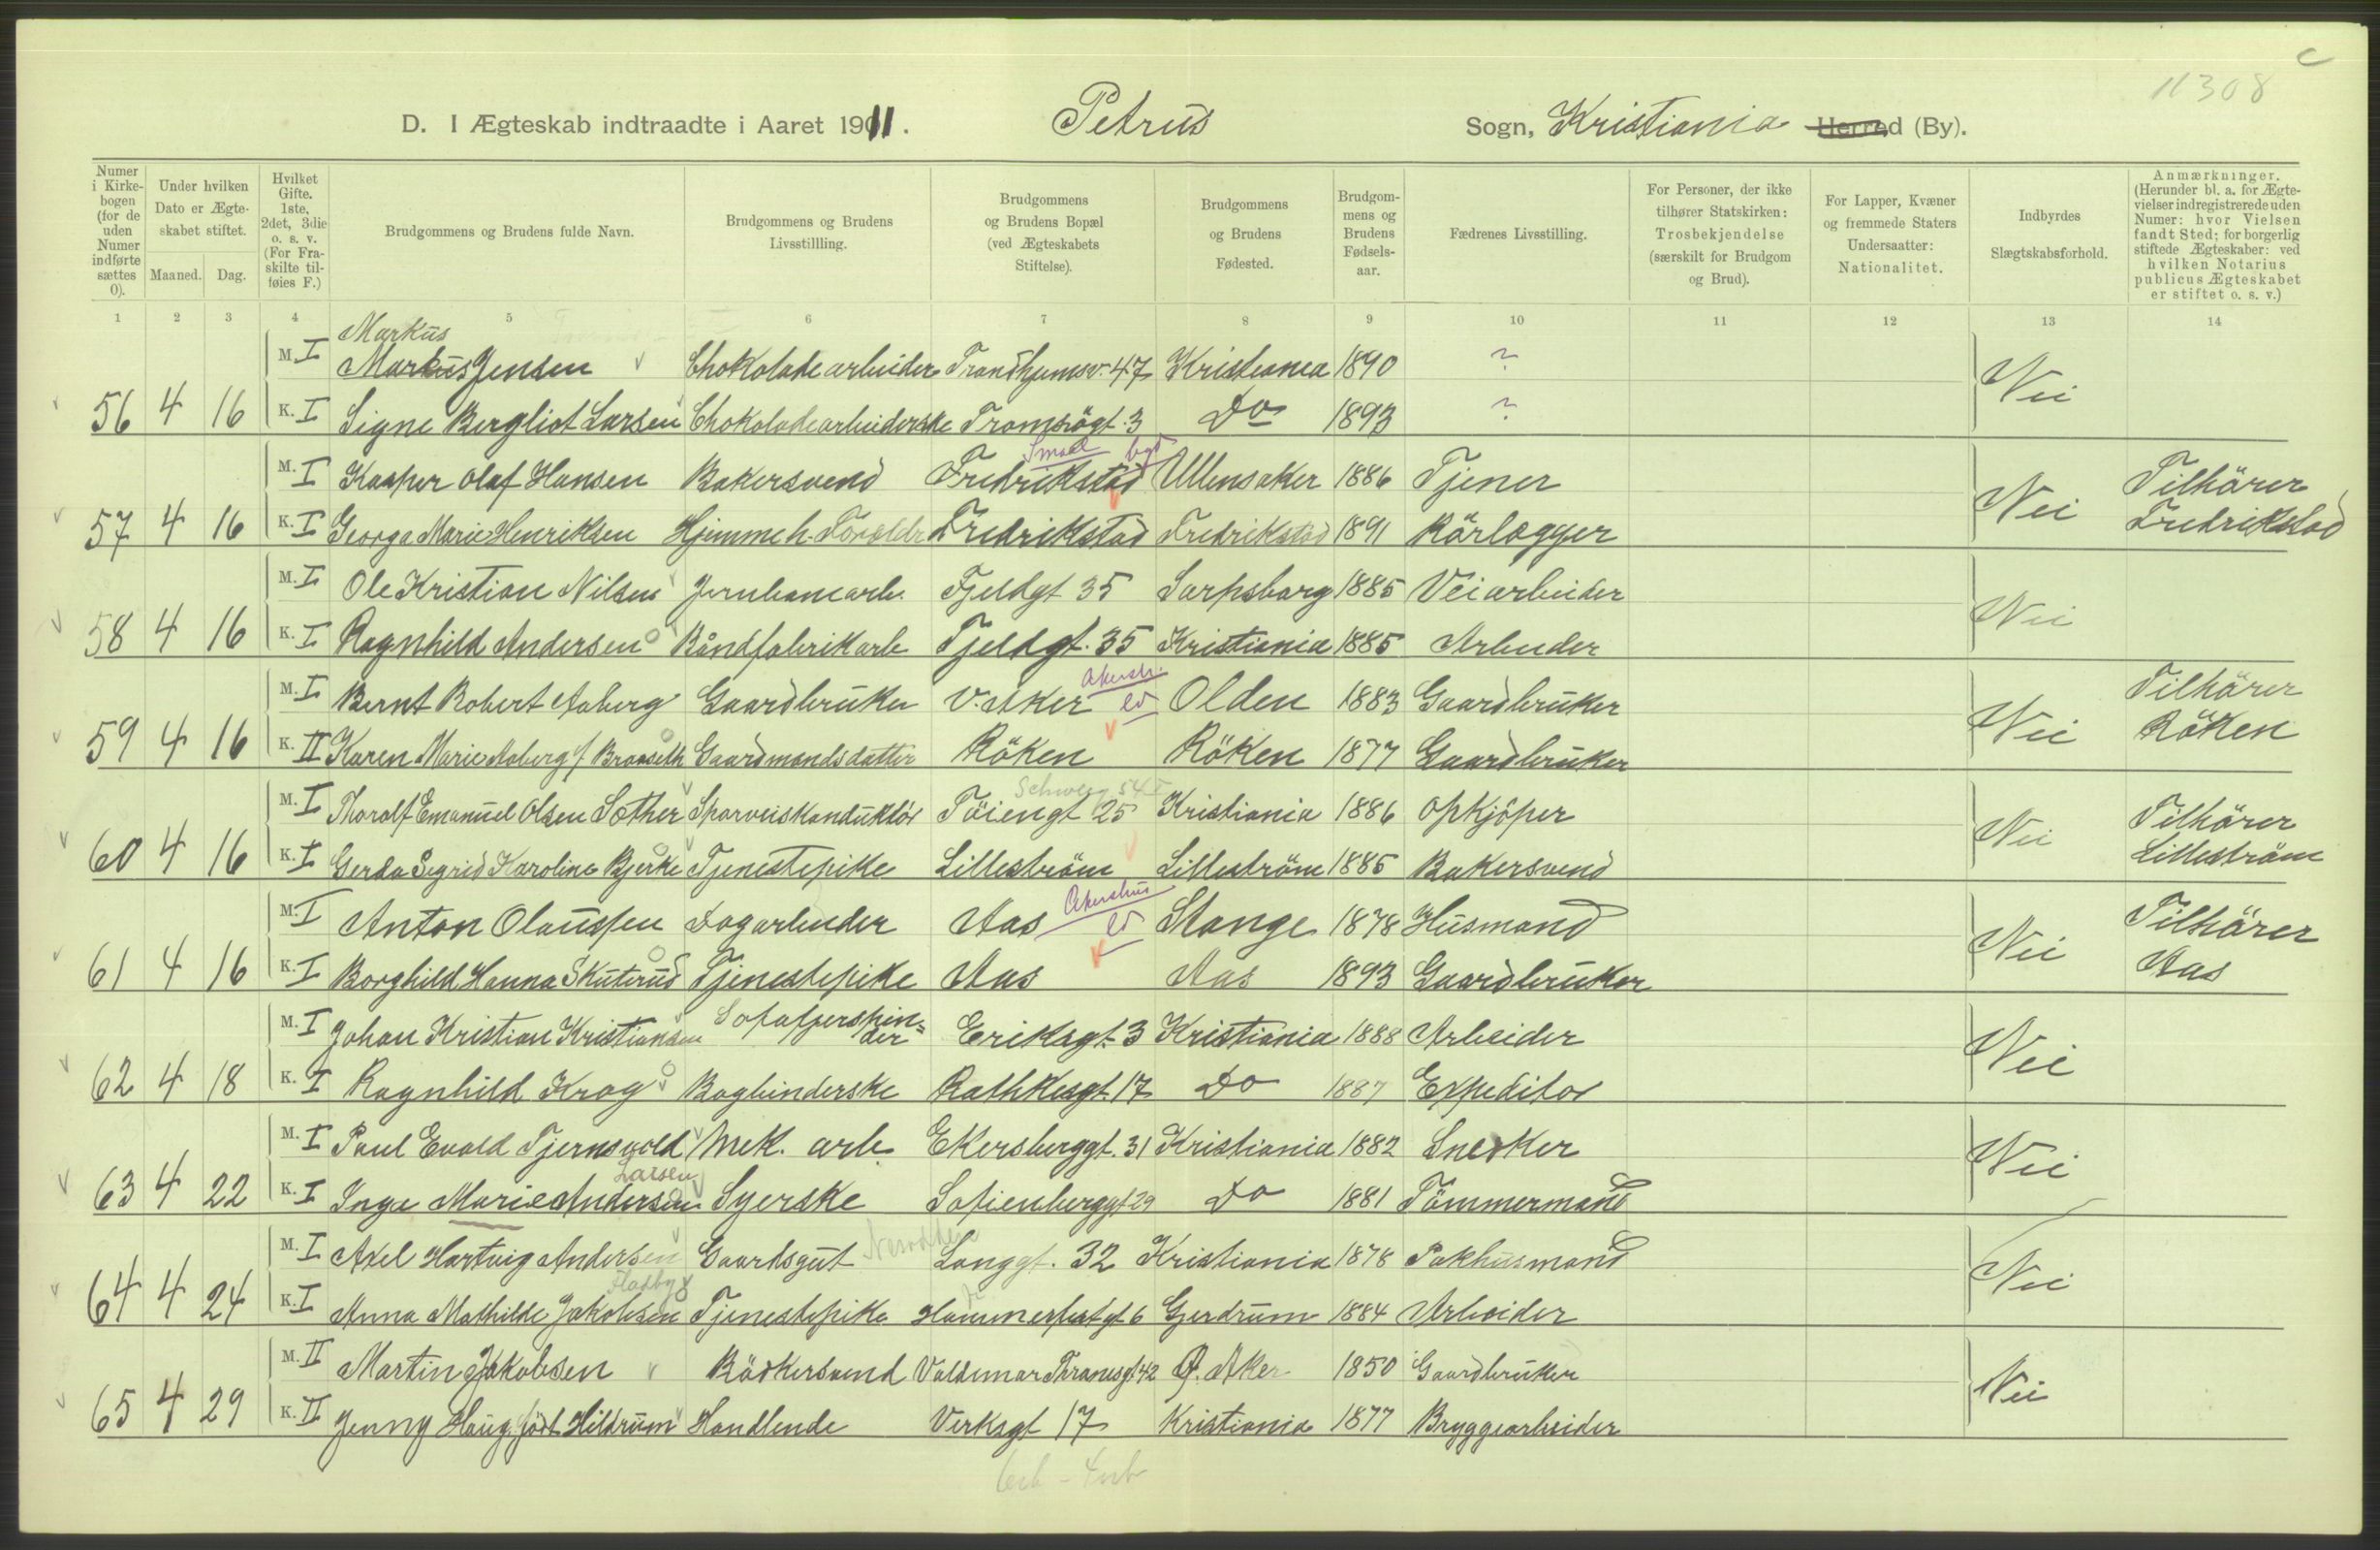 c
11308
D. I Ægteskab indtraadte i Aaret 1911. Petrus Sogn, Kristiania Herred (By).
Numer i Kirkebogen (for de uden Numer indførte sættes 0). | Under hvilken Dato er Ægteskabet stiftet. Maaned. Dag. | Hvilket Gifte. 1ste, 2det, 3die o. s. v. (For Fraskilte tilføies F.) | Brudgommens og Brudens fulde Navn. | Brudgommens og Brudens Livsstillling. | Brudgommens og Brudens Bopæl (ved Ægteskabets Stiftelse). | Brudgommens og Brudens Fødested. | Brudgommens og Brudens Fødselsaar. | Fædrenes Livsstilling. | For Personer, der ikke tilhører Statskirken: Trosbekjendelse (særskilt for Brudgom og Brud). | For Lapper, Kvæner og fremmede Staters Undersaatter: Nationalitet. | Indbyrdes Slægtskabsforhold. | Anmærkninger. (Herunder bl. a. for Ægtevielser indregistrerede uden Numer: hvor Vielsen fandt Sted; for borgerlig stiftede Ægteskaber: ved hvilken Notarius publicus Ægteskabet er stiftet o. s. v.)
1 2 3 4 5 6 7 8 9 10 11 12 13 14
Markus
M. I Markus Jensen Chokoladearbeider Trondhjemsv. 47 Kristiania 1890 ? Nei
56 4 16 K. I Signe Bergliot Larsen Chokoladearbeiderske Tromsögt. 3 Do 1893 ?
Smaal byd
M. I Kasper Olaf Hansen Bakersvend Fredrikstad Ullensaker 1886 Tjener Nei Tilhörer
57 4 16 K. I Georga Marie Henriksen Hjemme h. Foreldr Fredrikstad Fredrikstad 1891 Rörlægger Fredrikstad
M. I Ole Kristian Nilsen Jernbanearb. Fjeldgt 35 Sarpsborg 1885 Veiarbeider Nei
58 4 16 K. I Ragnhild Andersen Båndfabrikarb Fjeldgt. 35 Kristiania 1885 Arbeider
Akersh.
M. I Bernt Robert Aaberg Gaardbruker V. Aker ld Olden 1883 Gaardbruker Nei Tilhörer
59 4 16 K. II Karen Marie Aaberg f. Braaseth Gaardmandsdatter Röken Röken 1877 Gaardbruker Röken
Schweig 54 I
M. I Thoralf Emanuel Olsen Sæther Sporveiskonduktör Töiengt 25 Kristiania 1886 Opkjöper Nei Tilhörer
60 4 16 K. I Gerda Sigrid Karoline Bjerke Tjenestepike Lilleström Lilleström 1885 Bakersvend Lilleström
Akershus
M. I Anton Olaussen Dagarbeider Aas ld Stange 1878 Husmand Nei Tilhörer
61 4 16 K. I Borghild Hanna Skuterud Tjenestepike Aas Aas 1893 Gaardbruker Aas
M. I Johan Kristian Kristiansen Sofafjerspinder Eriksgt. 3 Kristiania 1888 Arbeider Nei
62 4 18 K. I Ragnhild Krog Bogbinderske Rathkesgt. 17 Do 1887 Expeditor
M. I Paul Evald Tjernsvold Mek. arb. Ekersberggt. 31 Kristiania 1882 Snekker Nei
Larsen
63 4 22 K. I Inga Marie Andersen Syerske Sofienberggt 29 Do 1881 Tömmermand
M. I Axel Hartvig Andersen Gaardsgut Langgt. 32 Kristiania 1878 Pakhusmand Nei
Flatby
64 4 24 K. I Anna Mathilde Jakobsen Tjenestepike Hammerfestgt 6 Gjerdrum 1884 Arbeider
M. II Martin Jakobsen Bödkersvend Valdemar Thranesgt. 42 Ø. Aker 1850 Gaardbruker Nei
65 4 29 K. II Jenny Haug född Hildrum Handlende Verksgt 17 Kristiania 1877 Bryggearbeider